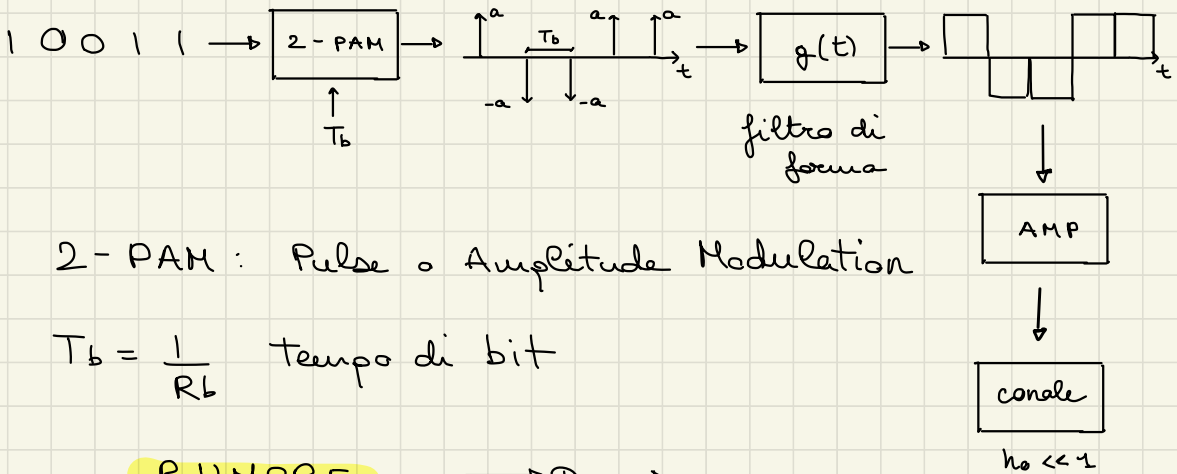 1 0 0 1 1
2-PAM
Tb
a
Tb
a
a
-a
-a
t
g(t)
filtro di
forma
t
AMP
2-PAM: Pulse o Amplitude Modulation
Tb = 1/Rb tempo di bit
canale
h0 << 1
RUMORE